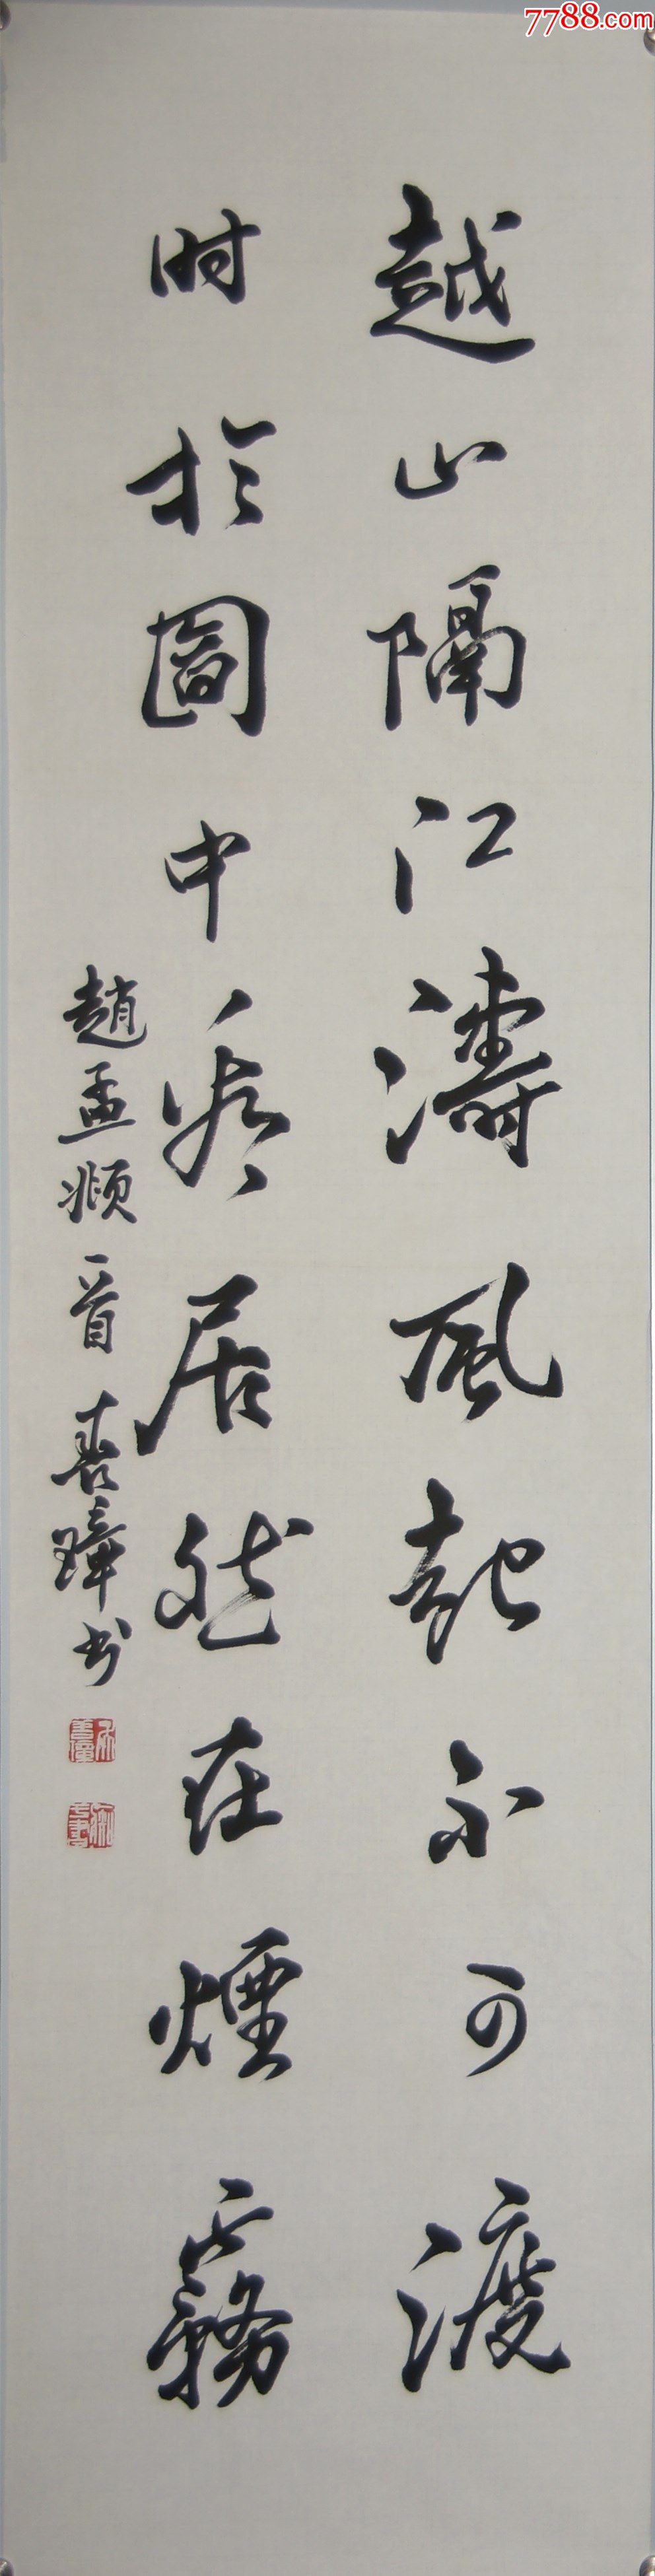 7788.com
越山隔江濤風起不可渡
时於圖中看居然在煙霧
趙孟頫一首 善璋书